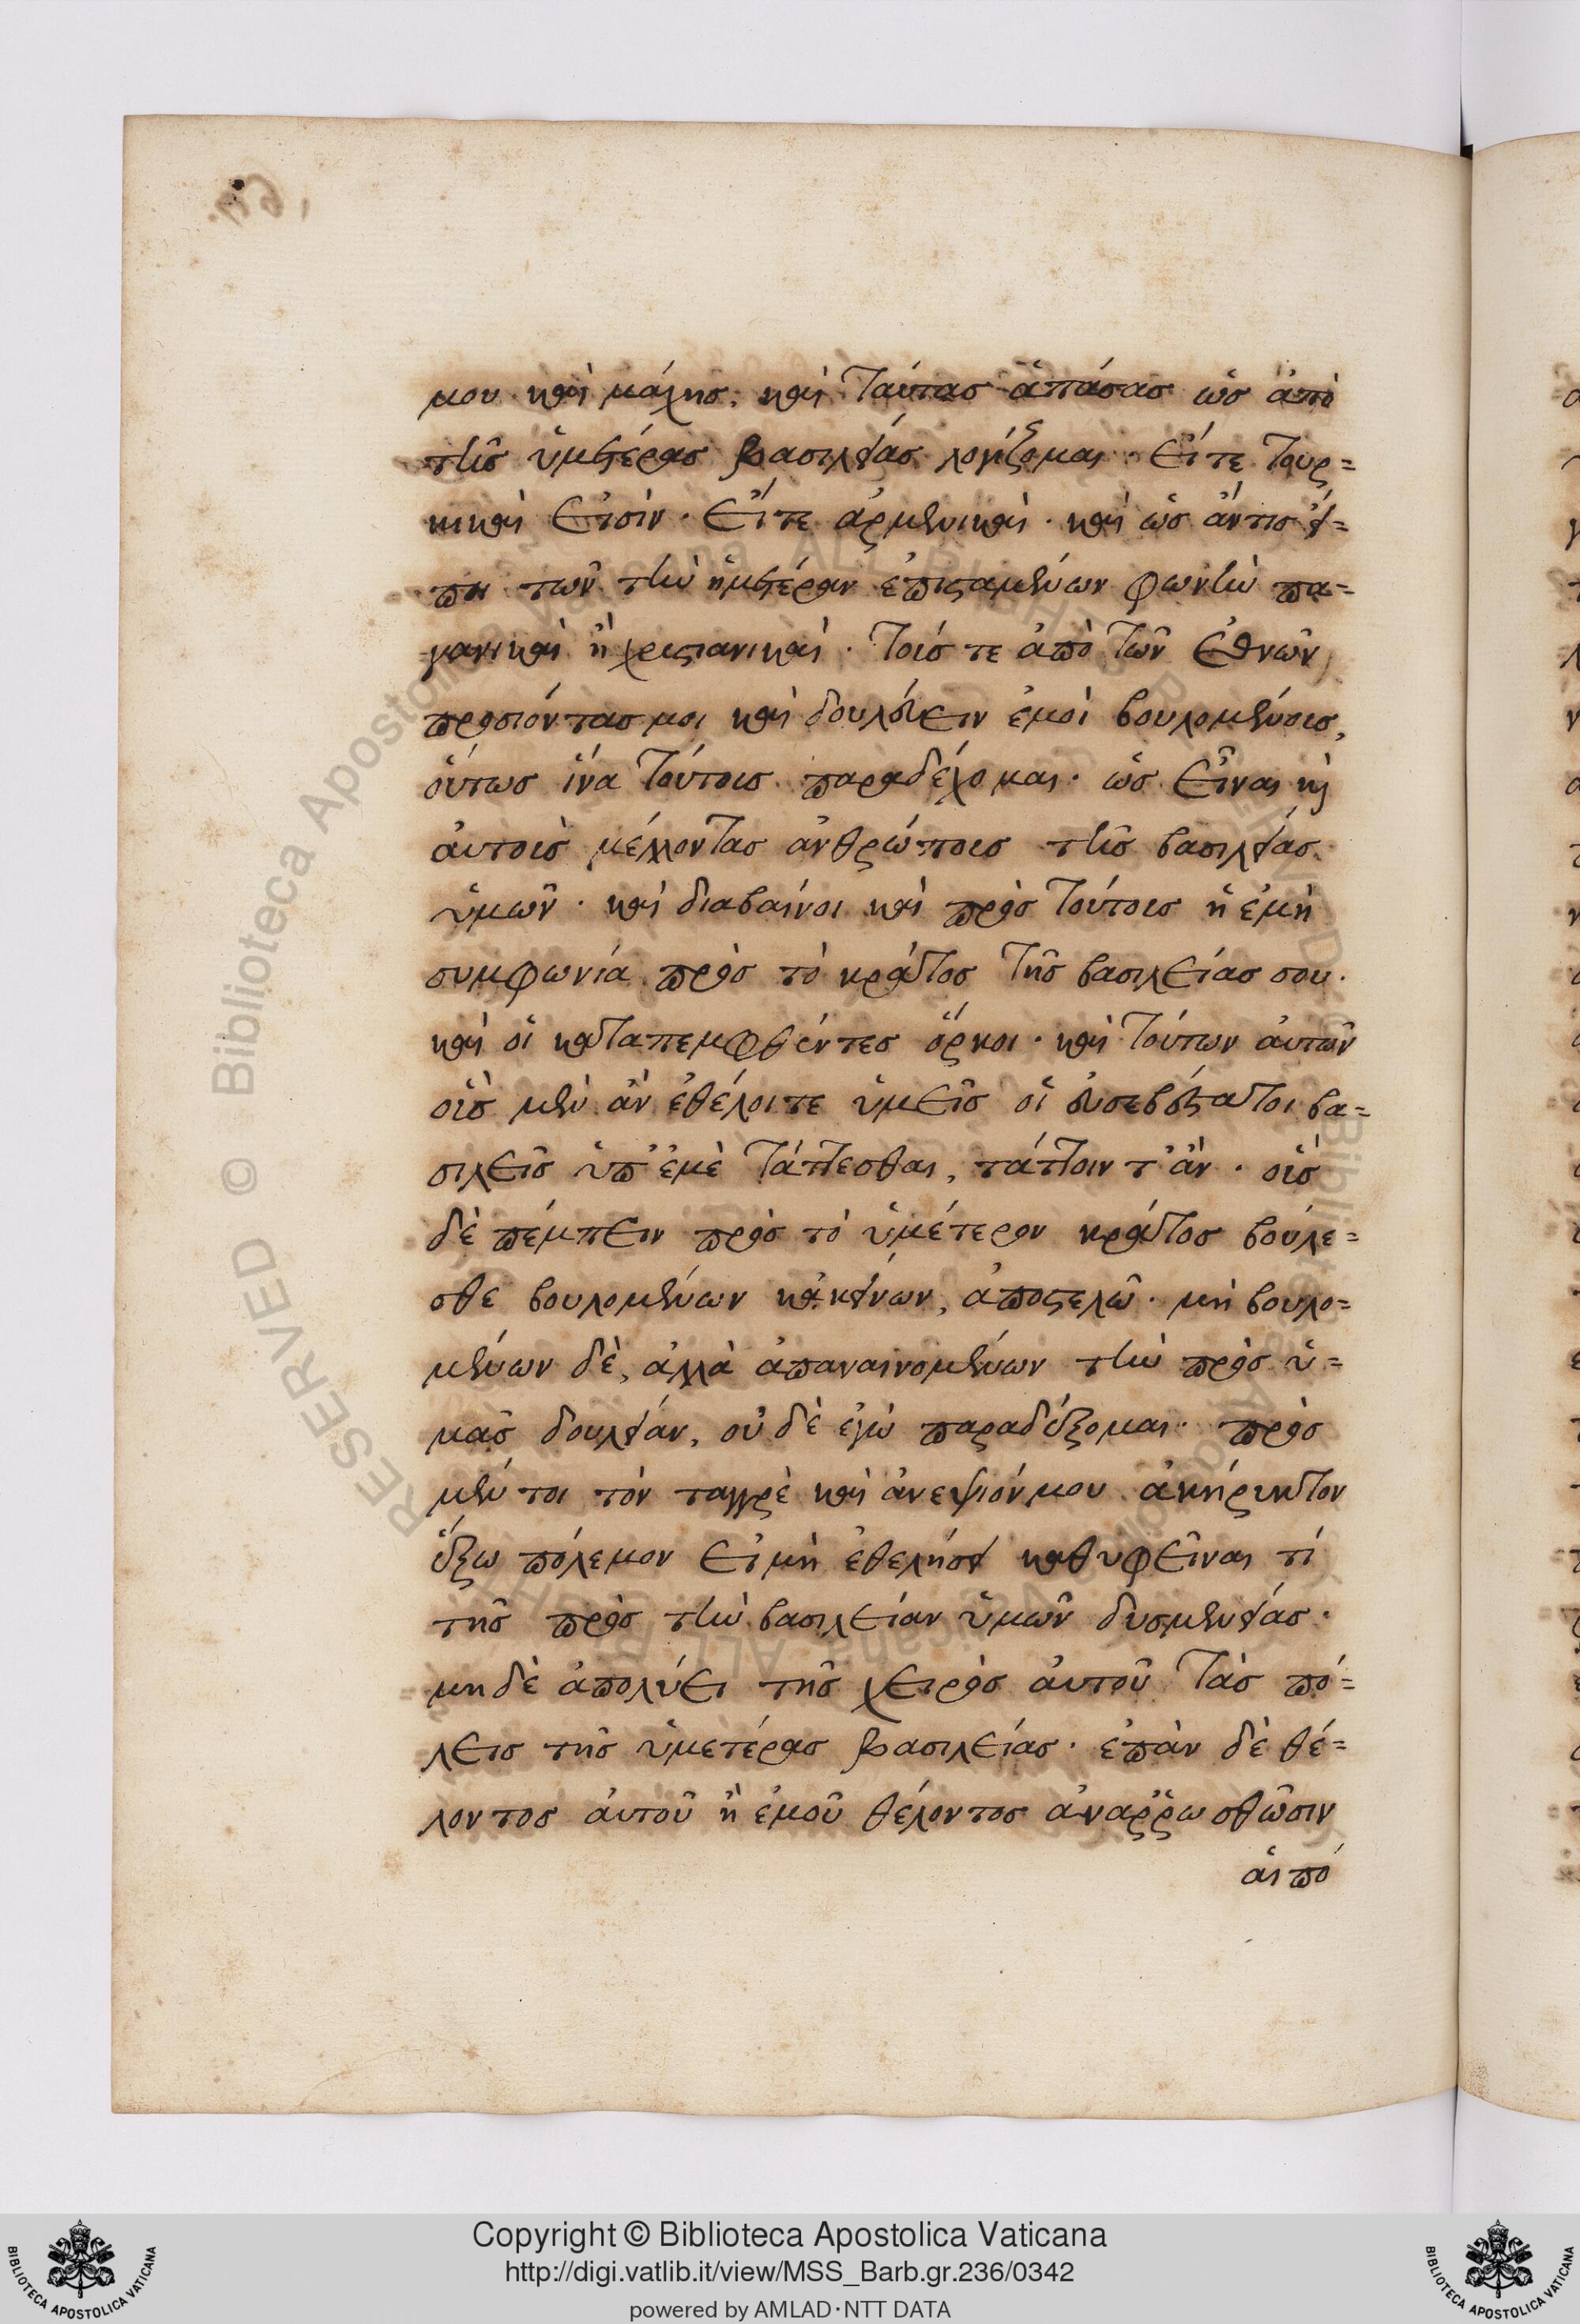 μου καὶ μάχης, καὶ ταύτας ἁπάσας ὡς ἀπὸ
τῆς ὑμετέρας βασιλείας λογίζομαι. εἴτε τουρ=
κικαὶ εἰσίν. εἴτε ἀρμενικαὶ. καὶ ὡς ἄν τις εἴ=
ποι τῶν τὴν ἡμετέραν ἐπισταμένων φωνὴν πα=
γανικαὶ ἢ χριστιανικαὶ. τοῖς τε ἀπὸ τῶν ἐθνῶν
προσιόντας μοι καὶ δουλεύειν ἐμοὶ βουλομένοις,
οὕτως ἵνα τούτοις παραδέχομαι. ὡς εἶναι καὶ
αὐτοὶς μέλλοντας ἀνθρώποις τῆς βασιλείας
ὑμῶν. καὶ διαβαίνοι καὶ πρὸς τούτοις ἡ ἐμὴ
συμφωνία πρὸς τὸ κράτος τῆς βασιλείας σου.
καὶ οἱ καταπεμφθέντες ὅρκοι. καὶ τούτων αὐτῶν
οἷς μὲν ἂν ἐθέλοιτε ὑμεῖς οἱ εὐσεβέστατοι βα=
σιλεῖς ὑπ' ἐμὲ τάττεσθαι, τάττοιντ' ἄν. οἷς
δὲ πέμπειν πρὸς τὸ ὑμέτερον κράτος βούλε=
σθε βουλομένων κἀκείνων, ἀποστελῶ. μὴ βουλο=
μένων δὲ, ἀλλὰ ἀπαναινομένων τὴν πρὸς ὑ=
μᾶς δουλείαν, οὐδὲ ἐγὼ παραδέξομαι. πρὸς
μέν τοι τὸν ταγγρὲ καὶ ἀνεψιόν μου ἀκήρυκτον
ἕξω πόλεμον εἰ μὴ ἐθελήσει καθυφεῖναι τί
τῆς πρὸς τὴν βασιλείαν ὑμῶν δυσμενείας.
μηδὲ ἀπολύει τῆς χειρὸς αὐτοῦ τὰς πό=
λεις τῆς ὑμετέρας βασιλείας. ἐπὰν δὲ θέ=
λοντος αὐτοῦ ἢ ἐμοῦ θέλοντος ἀναῤῥωσθῶσιν
αἱ πό
Copyright © Biblioteca Apostolica Vaticana
http://digi.vatlib.it/view/MSS_Barb.gr.236/0342
powered by AMLAD·NTT DATA